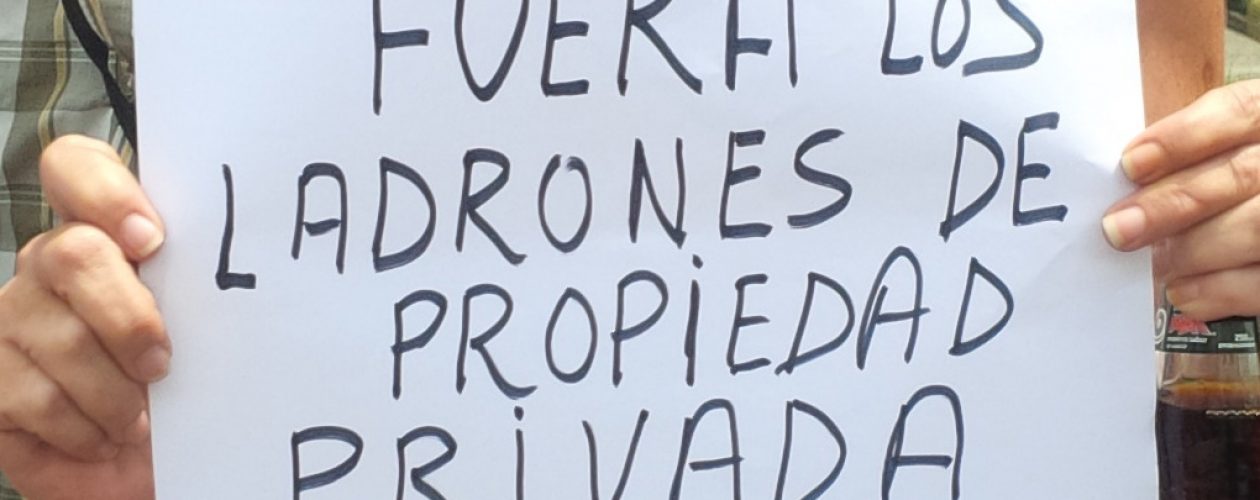 FUERA LOS
LADRONES DE
PROPiEDAD
PRiVADA